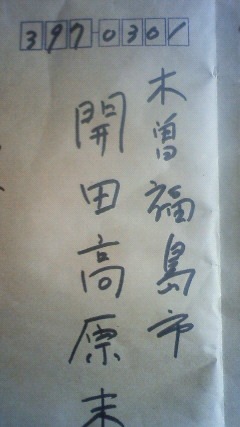 397-0301
木曽福島市
開田高原末